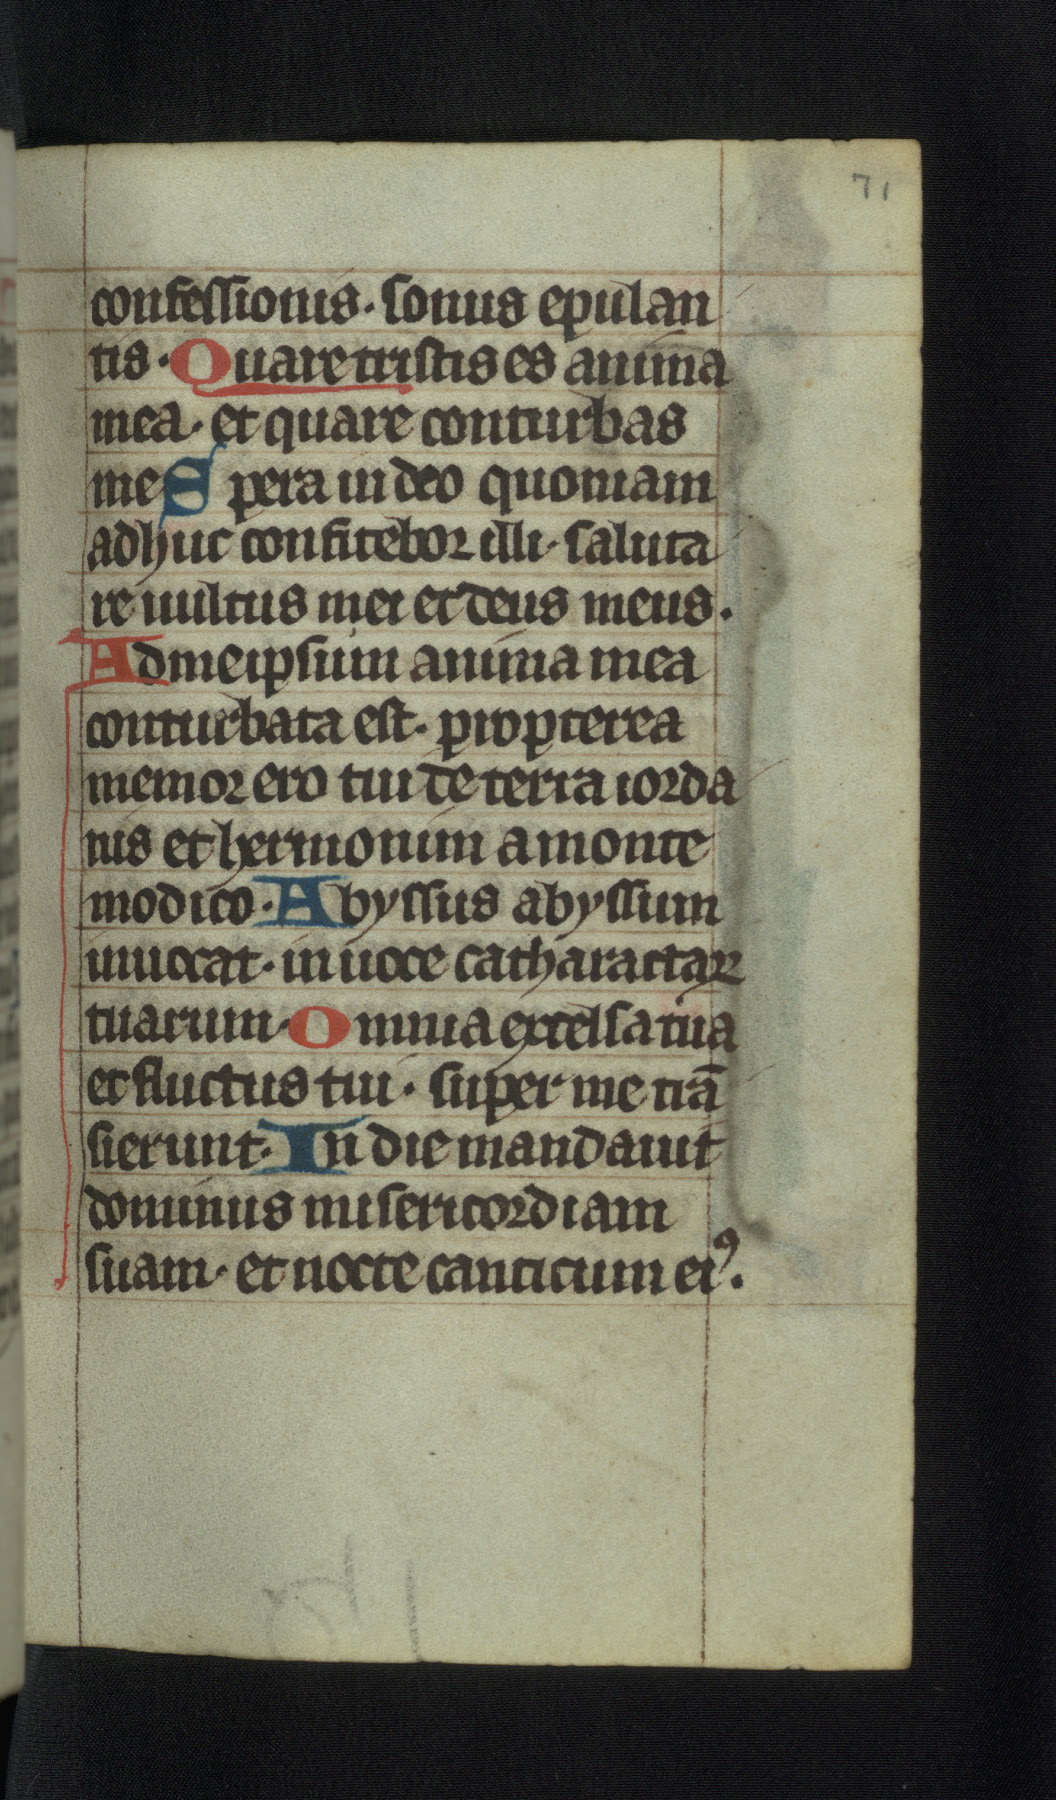 71
confessionis. sonus epulan
tis. Quare tristis es anima
mea. et quare conturbas
me Spera in deo quoniam
adhuc confitebor illi. saluta
re uultus mei et deus meus.
Ad me ipsum anima mea
conturbata est. propterea
memor ero tui de terra iorda
nis et hermonim a monte
modico. Abyssus abyssum
inuocat. in uoce catharactaꝝ
tuarum. Omnia excelsa tua
et fluctus tui. super me trā
sierunt. In die mandauit
dominus misericordiam
suam. et nocte canticum eiꝰ.